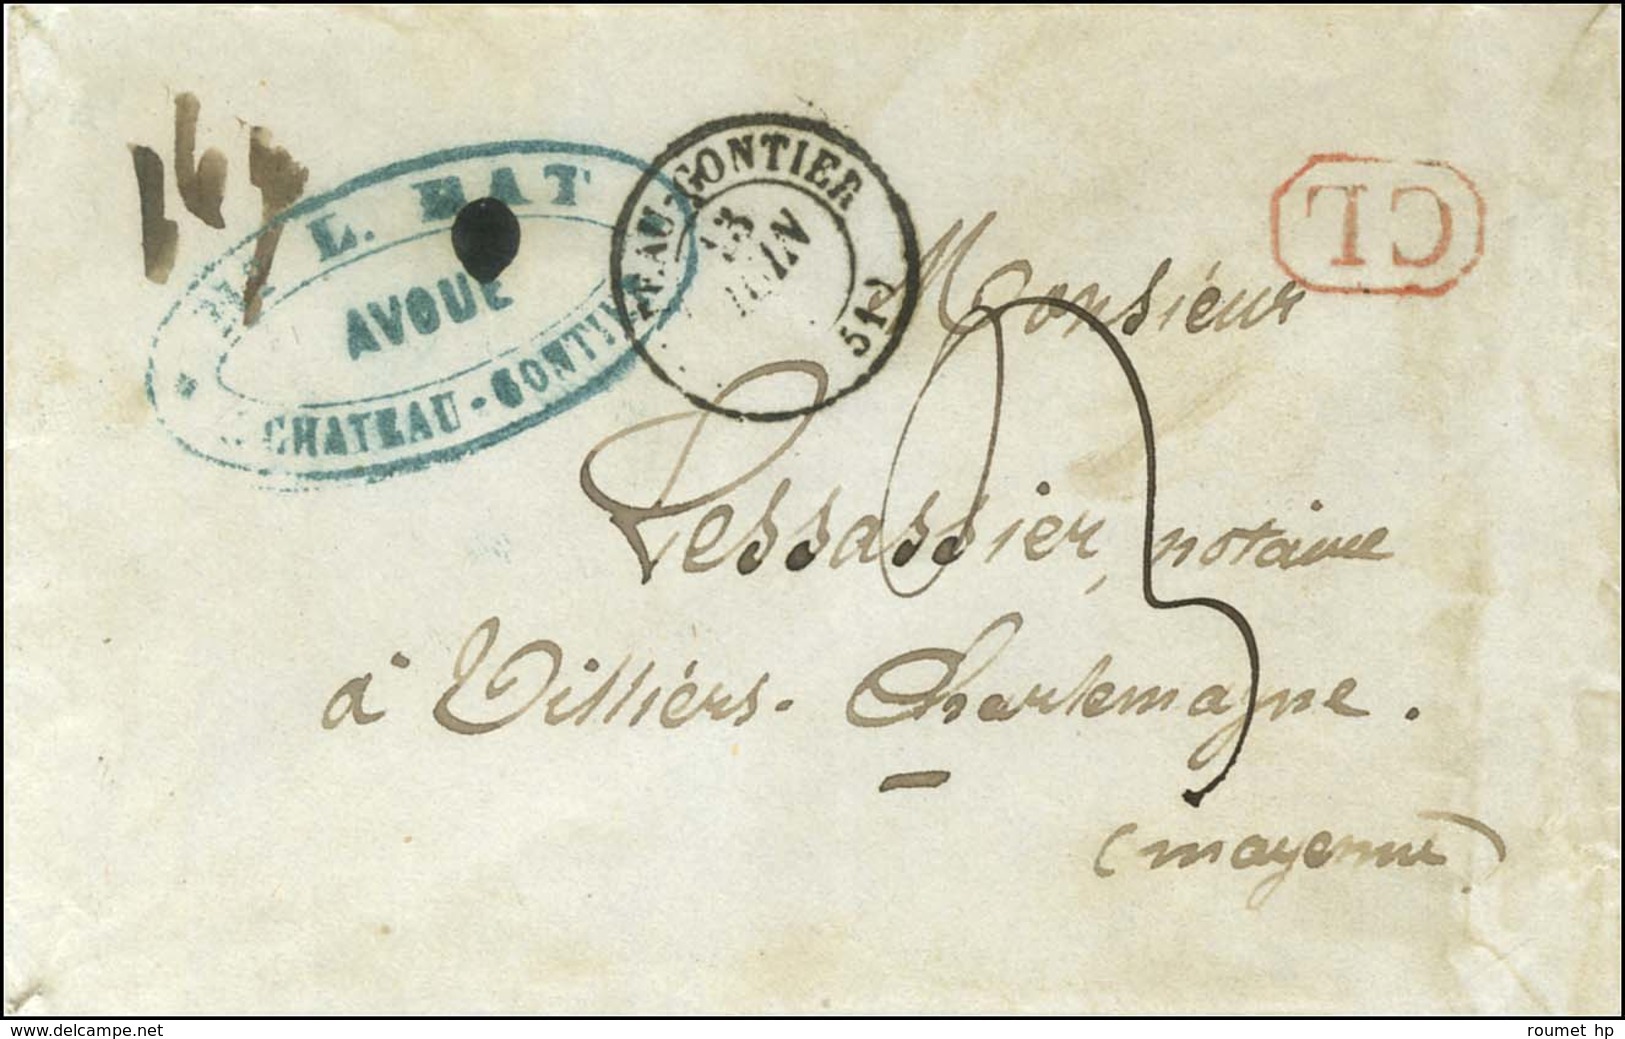 L. HAT
AVOUÉ
CHATEAU-GONTI
EAU-GONTIER
13
JUIN
51
CL
Monsieur
Lessassier, notaire
à Villiérs-Charlemagne.
(mayenne)
3
www.delcampe.net
roumet hp